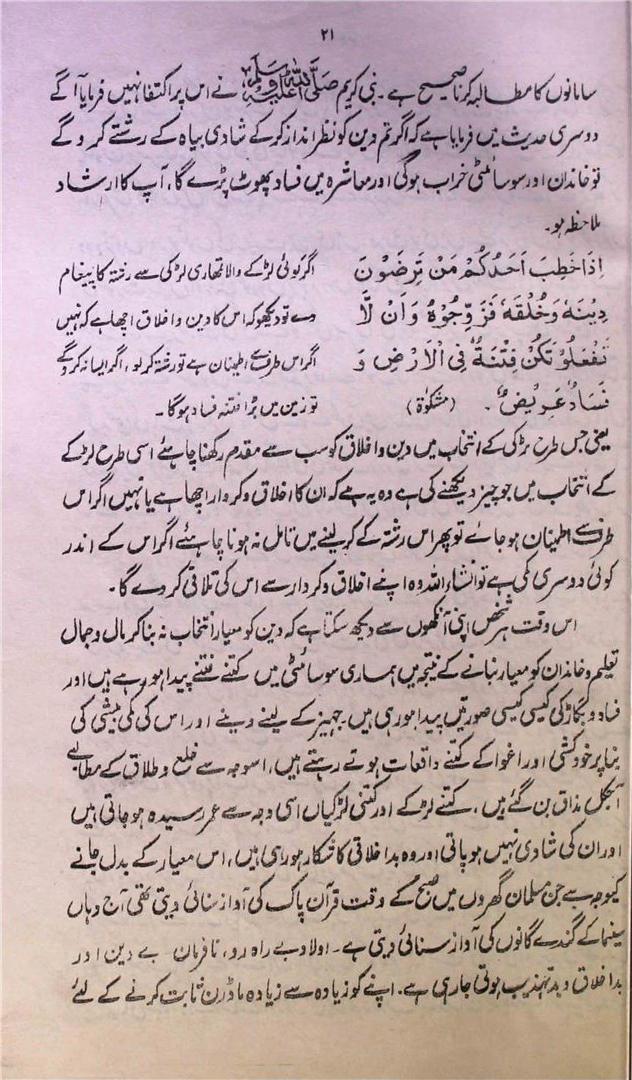 ۲۱
سامانوں کا مطالبہ کرنا صحیح ہے۔ نبی کریم صلی اللہ علیہ وسلم نے اس پر اکتفا نہیں فرمایا آگے
دوسری حدیث میں فرمایا ہے کہ اگر تم دین کو نظر انداز کرکے شادی بیاہ کے رشتے کروگے
تو خاندان اور سوسائٹی خراب ہوگی اور معاشرہ میں فساد پھوٹ پڑے گا، آپ کا ارشاد
ملاحظہ ہو۔
اِذَا خَطَبَ اَحَدُكُمْ مَنْ تَرْضَوْنَ
دِيْنَهٗ وَخُلُقَهٗ فَزَوِّجُوْهُ وَاَنْ لَّا
تَفْعَلُوْ تَكُنْ فِتْنَةٌ فِى الْاَرْضِ وَ
فَسَادٌ عَرِيْضٌ۔ (مشکوٰۃ)
اگر کوئی لڑکے والا تمھاری لڑکی سے رشتہ کا پیغام
دے تو دیکھو کہ اس کا دین و اخلاق اچھا ہے کہ نہیں
اگر اس طرف سے اطمینان ہے تو رشتہ کر لو، اگر ایسا نہ کروگے
تو زمین میں بڑا فتنہ فساد ہوگا۔
یعنی جس طرح لڑکی کے انتخاب میں دین و اخلاق کو سب سے مقدم رکھنا چاہئے اسی طرح لڑکے
کے انتخاب میں جو چیز دیکھنے کی ہے وہ یہ ہے کہ ان کا اخلاق و کردار اچھا ہے یا نہیں اگر اس
طرف سے اطمینان ہو جائے تو پھر اس رشتہ کے کر لینے میں تامل نہ ہونا چاہئے اگر اس کے اندر
کوئی دوسری کمی ہے تو انشاء اللہ وہ اپنے اخلاق و کردار سے اس کی تلافی کردے گا۔
اس وقت ہر شخص اپنی آنکھوں سے دیکھ سکتا ہے کہ دین کو معیار انتخاب نہ بنا کر مال و جمال
تعلیم و خاندان کو معیار بنانے کے نتیجہ میں ہماری سوسائٹی میں کتنے فتنے پیدا ہو رہے ہیں اور
فساد و بگاڑ کی کیسی کیسی صورتیں پیدا ہو رہی ہیں۔ جہیز کے لینے دینے اور اس کی کمی بیشی کی
بنا پر خودکشی اور اغوا کے کتنے واقعات ہوتے رہتے ہیں، اسوجہ سے خلع و طلاق کے مطالبے
آجکل مذاق بن گئے ہیں، کتنے لڑکے اور کتنی لڑکیاں اسی وجہ سے عمر رسیدہ ہو جاتی ہیں
اور ان کی شادی نہیں ہو پاتی اور وہ بداخلاقی کا شکار ہو رہی ہیں، اس معیار کے بدل جانے
کیوجہ سے جن مسلمان گھروں میں صبح کے وقت قرآن پاک کی آواز سنائی دیتی تھی آج وہاں
سینما کے گندے گانوں کی آواز سنائی دیتی ہے۔ اولاد بے راہ رو، نافرمان بے دین اور
بداخلاق و بدتہذیب ہوتی جا رہی ہے۔ اپنے کو زیادہ سے زیادہ ماڈرن ثابت کرنے کے لئے